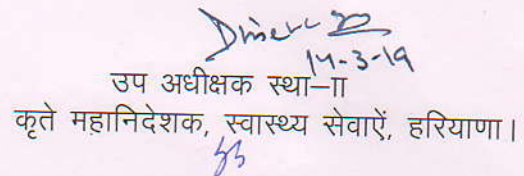 14-3-19
उप अधीक्षक स्था–II
कृते महानिदेशक, स्वास्थ्य सेवाऐं, हरियाणा।